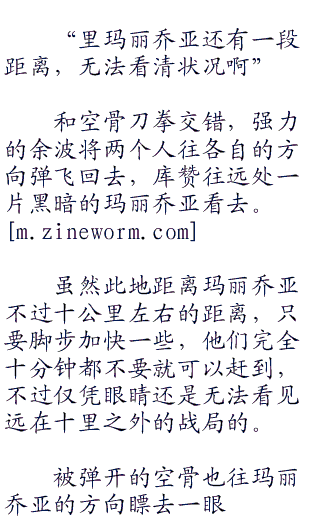 “里玛丽乔亚还有一段
距离，无法看清状况啊”
和空骨刀拳交错，强力
的余波将两个人往各自的方
向弹飞回去，库赞往远处一
片黑暗的玛丽乔亚看去。
[m.zineworm.com]
虽然此地距离玛丽乔亚
不过十公里左右的距离，只
要脚步加快一些，他们完全
十分钟都不要就可以赶到，
不过仅凭眼睛还是无法看见
远在十里之外的战局的。
被弹开的空骨也往玛丽
乔亚的方向瞟去一眼